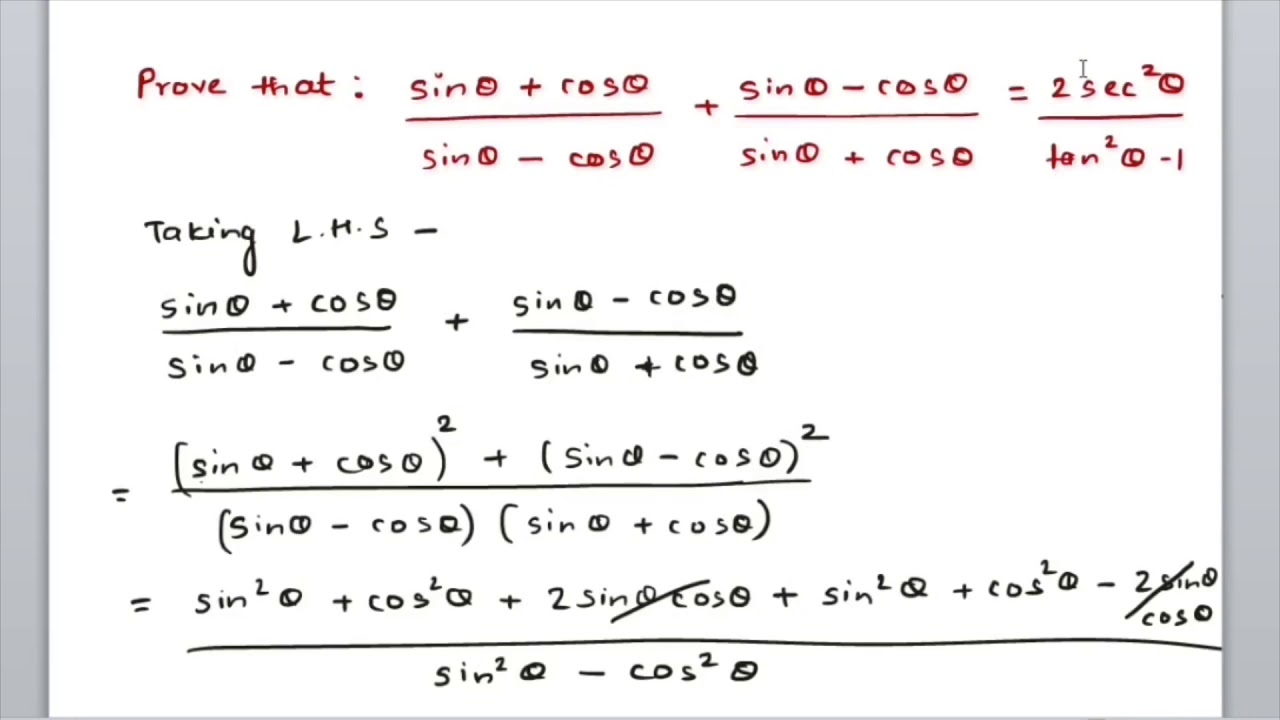 Prove that : (sinθ + cosθ)/(sinθ − cosθ) + (sinθ − cosθ)/(sinθ + cosθ) = (2sec²θ)/(tan²θ −1)
Taking L.H.S −
(sinθ + cosθ)/(sinθ − cosθ) + (sinθ − cosθ)/(sinθ + cosθ)
= ((sinθ + cosθ)² + (sinθ − cosθ)²)/((sinθ − cosθ)(sinθ + cosθ))
= (sin²θ + cos²θ + 2sinθ cosθ + sin²θ + cos²θ − 2sinθ cosθ)/(sin²θ − cos²θ)